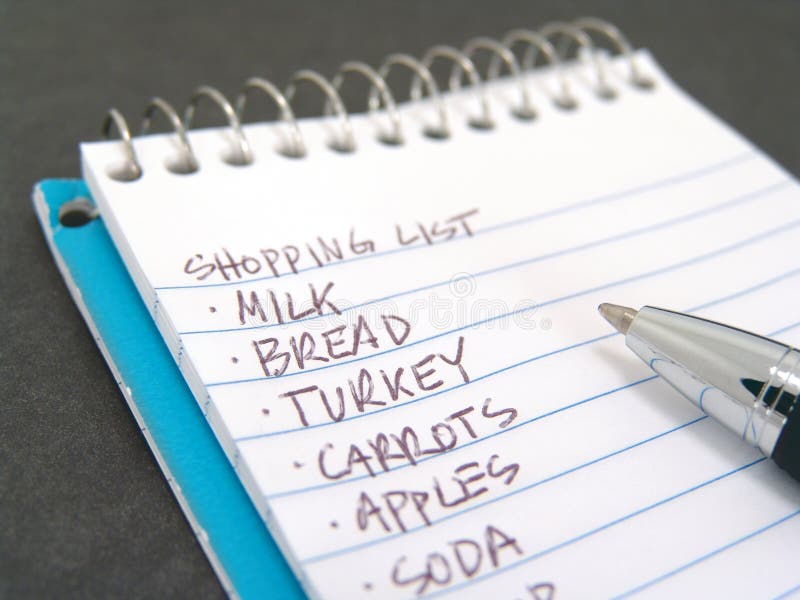 SHOPPING LIST
· MILK
· BREAD
· TURKEY
· CARROTS
· APPLES
· SODA